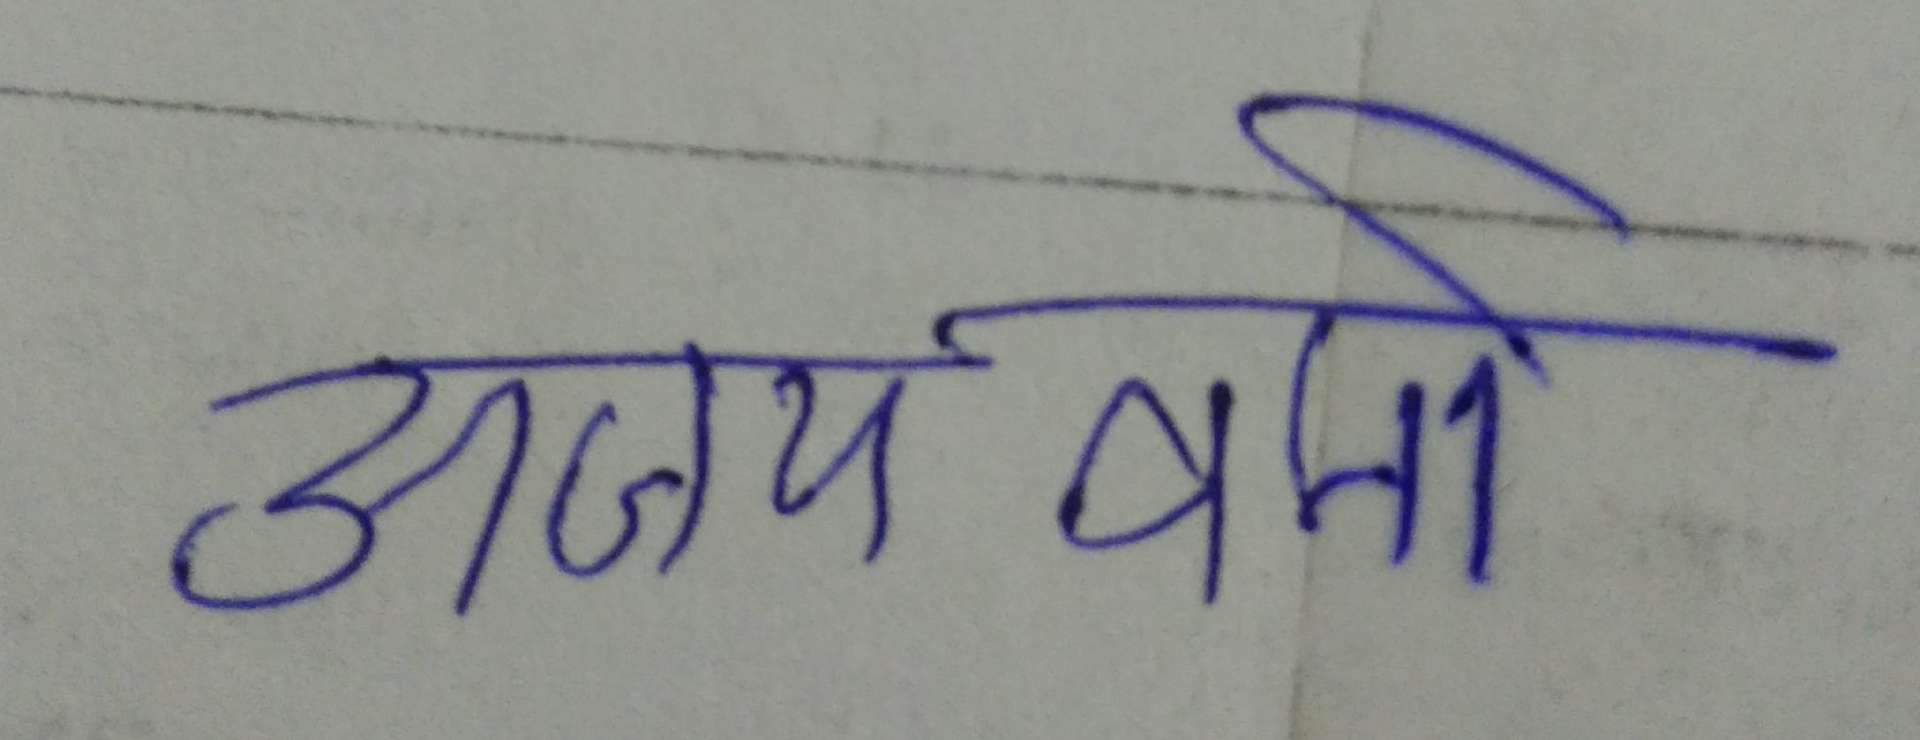 अजय वर्मा